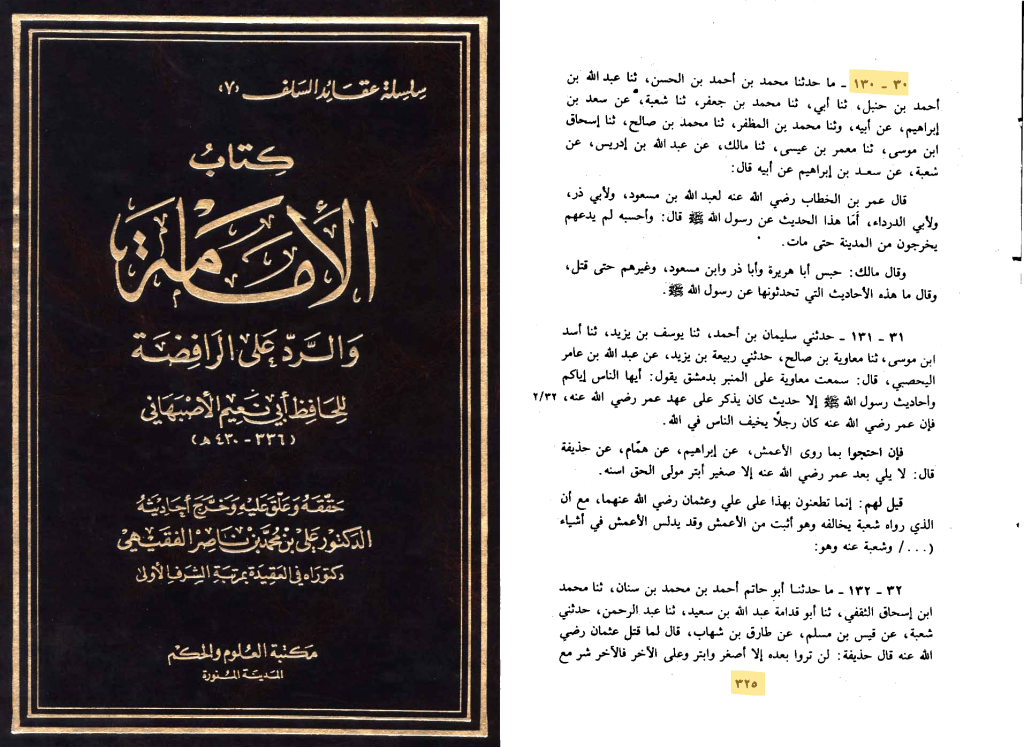 سلسلة عقائد السلف (٧)
كتاب
الأمامة
والرد على الرافضة
للحافظ أبي نعيم الأصبهاني
(٣٣٦-٤٣٠ هـ)
حققه وعلق عليه وخرج أحاديثه
الدكتور علي بن محمد بن ناصر الفقيهي
دكتوراه في العقيدة بمرتبة الشرف الأولى
مكتبة العلوم والحكم
المدينة المنورة
٣٠ - ١٣٠ - ما حدثنا محمد بن أحمد بن الحسن، ثنا عبد الله بن
أحمد بن حنبل، ثنا أبي، ثنا محمد بن جعفر، ثنا شعبة، عن سعد بن
إبراهيم، عن أبيه، وثنا محمد بن المظفر، ثنا محمد بن صالح، ثنا إسحاق
ابن موسى، ثنا معمر بن عيسى، ثنا مالك، عن عبد الله بن إدريس، عن
شعبة، عن سعد بن إبراهيم عن أبيه قال:
قال عمر بن الخطاب رضي الله عنه لعبد الله بن مسعود، ولأبي ذر،
ولأبي الدرداء، أما هذا الحديث عن رسول الله ﷺ قال: وأحسبه لم يدعهم
يخرجون من المدينة حتى مات.
وقال مالك: حبس أبا هريرة وأبا ذر وابن مسعود، وغيرهم حتى قتل،
وقال ما هذه الأحاديث التي تحدثونها عن رسول الله ﷺ.
٣١ - ١٣١ - حدثني سليمان بن أحمد، ثنا يوسف بن يزيد، ثنا أسد
ابن موسى، ثنا معاوية بن صالح، حدثني ربيعة بن يزيد، عن عبد الله بن عامر
اليحصبي، قال: سمعت معاوية على المنبر بدمشق يقول: أيها الناس إياكم
وأحاديث رسول الله ﷺ إلا حديث كان يذكر على عهد عمر رضي الله عنه، ٢/٣٢
فإن عمر رضي الله عنه كان رجلاً يخيف الناس في الله.
فإن احتجوا بما روى الأعمش، عن إبراهيم، عن همّام، عن حذيفة
قال: لا يلي بعد عمر رضي الله عنه إلا صغير أبتر مولى الحق اسنه.
قيل لهم: إنما تطعنون بهذا على علي وعثمان رضي الله عنهما، مع أن
الذي رواه شعبة يخالفه وهو أثبت من الأعمش وقد يدلس الأعمش في أشياء
(.../ وشعبة عنه وهو:
٣٢ - ١٣٢ - ما حدثنا أبو حاتم أحمد بن محمد بن سنان، ثنا محمد
ابن إسحاق الثقفي، ثنا أبو قدامة عبد الله بن سعيد، ثنا عبد الرحمن، حدثني
شعبة، عن قيس بن مسلم، عن طارق بن شهاب، قال لما قتل عثمان رضي
الله عنه قال حذيفة: لن تروا بعده إلا أصغر وابتر وعلى الآخر فالآخر شر مع
٣٢٥